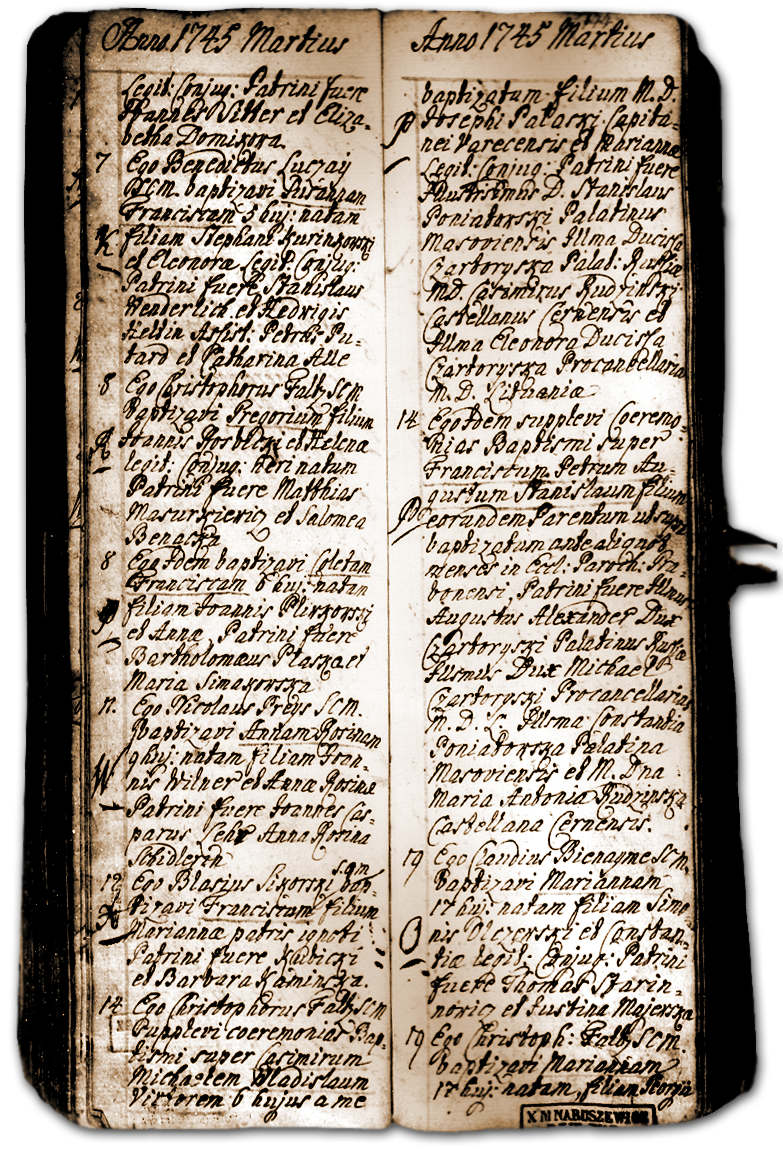 Anno 1745 Martius
Legit: Conjug: Patrini fuere
Joannes Vitter et Eliza=
betha Domikora
7 Ego Benedictus Luczay
SCM. baptizavi Susannam
Franciscam 5 huj: natam
K filiam Stephani Kusinkowski
et Eleonoræ Legit: Conjug:
Patrini fuere Stanislaus
Henderlich et Hedvigis
Heldin Assist: Petrus Pu=
tard et Catharina Alle
8 Ego Christophorus Faltz SCM
baptizavi Gregorium filium
R Joannis et Helenæ
legit: Conjug: heri natum
Patrini fuere Matthias
Masurkiewicz et Salomea
Benacka
8 Ego Idem baptizavi Coletam
Franciscam 6 huj: natam
P filiam Joannis Plixkowski
et Annæ, Patrini fuere
Bartholomæus Ptaszka et
Maria Simakowska
11. Ego Nicolaus Preys SCM.
Baptizavi Annam Rosinam
9 huj: natam filiam Joan=
W nis Wilner et Annæ Rosinæ
Patrini fuere Joannes Cas=
parus Lehr Anna Rosina
Schidlerin
12 Ego Blasius Sikorski s.c.m. bap=
tizavi Franciscum filium
Mariannæ patris ignoti
Patrini fuere Kubicki
et Barbara Kaminska.
14 Ego Christophorus Faltz SCM
Supplevi coeremonias Bap=
tismi super Casimirum
Michaelem Wladislaum
Victorem 6 hujus a me
Anno 1745 Martius
baptizatum filium M. D.
P Josephi Pułaski Capita=
nei Varecensis et Mariannæ
Legit: Conjug: Patrini fuere
Illustrissimus D. Stanislaus
Poniatowski Palatinus
Masoviensis Illma Ducissa
Czartoryska Palat: Russiæ
M.D. Casimirus Rudzinski
Castellanus Cernensis et
Illma Eleonora Ducissa
Czartoryska Procancellaria
M. D. Lithuaniæ
14 Ego Idem supplevi Coeremo=
nias Baptismi super
Franciscum Petrum Au=
gustum Stanislaum filium
P eorundem Parentum ut supra
baptizatum ante aliquot
menses in Eccl: Paroch: Gra=
bonensi, Patrini fuere Illmus
Augustus Alexander Dux
Czartoryski Palatinus Russiæ
Illsmus Dux Michael
Czartoryski Procancellarius
M. D. L. Illsma Constantia
Poniatowska Palatina
Masoviensis et M. Dna
Maria Antonia Rudzinska
Castellana Cernensis.
19 Ego Claudius Bienayme SCM.
baptizavi Mariannam
17 huj: natam filiam Simo=
O nis Olczewski et Constan=
tiæ legit: Conjug: Patrini
fuere Thomas Starin=
noricz et Justina Majewska
19 Ego Christoph: Faltz SCM.
baptizavi Mariannam
17 huj: natam, filiam Georgii
X M NABUSZEWICZ